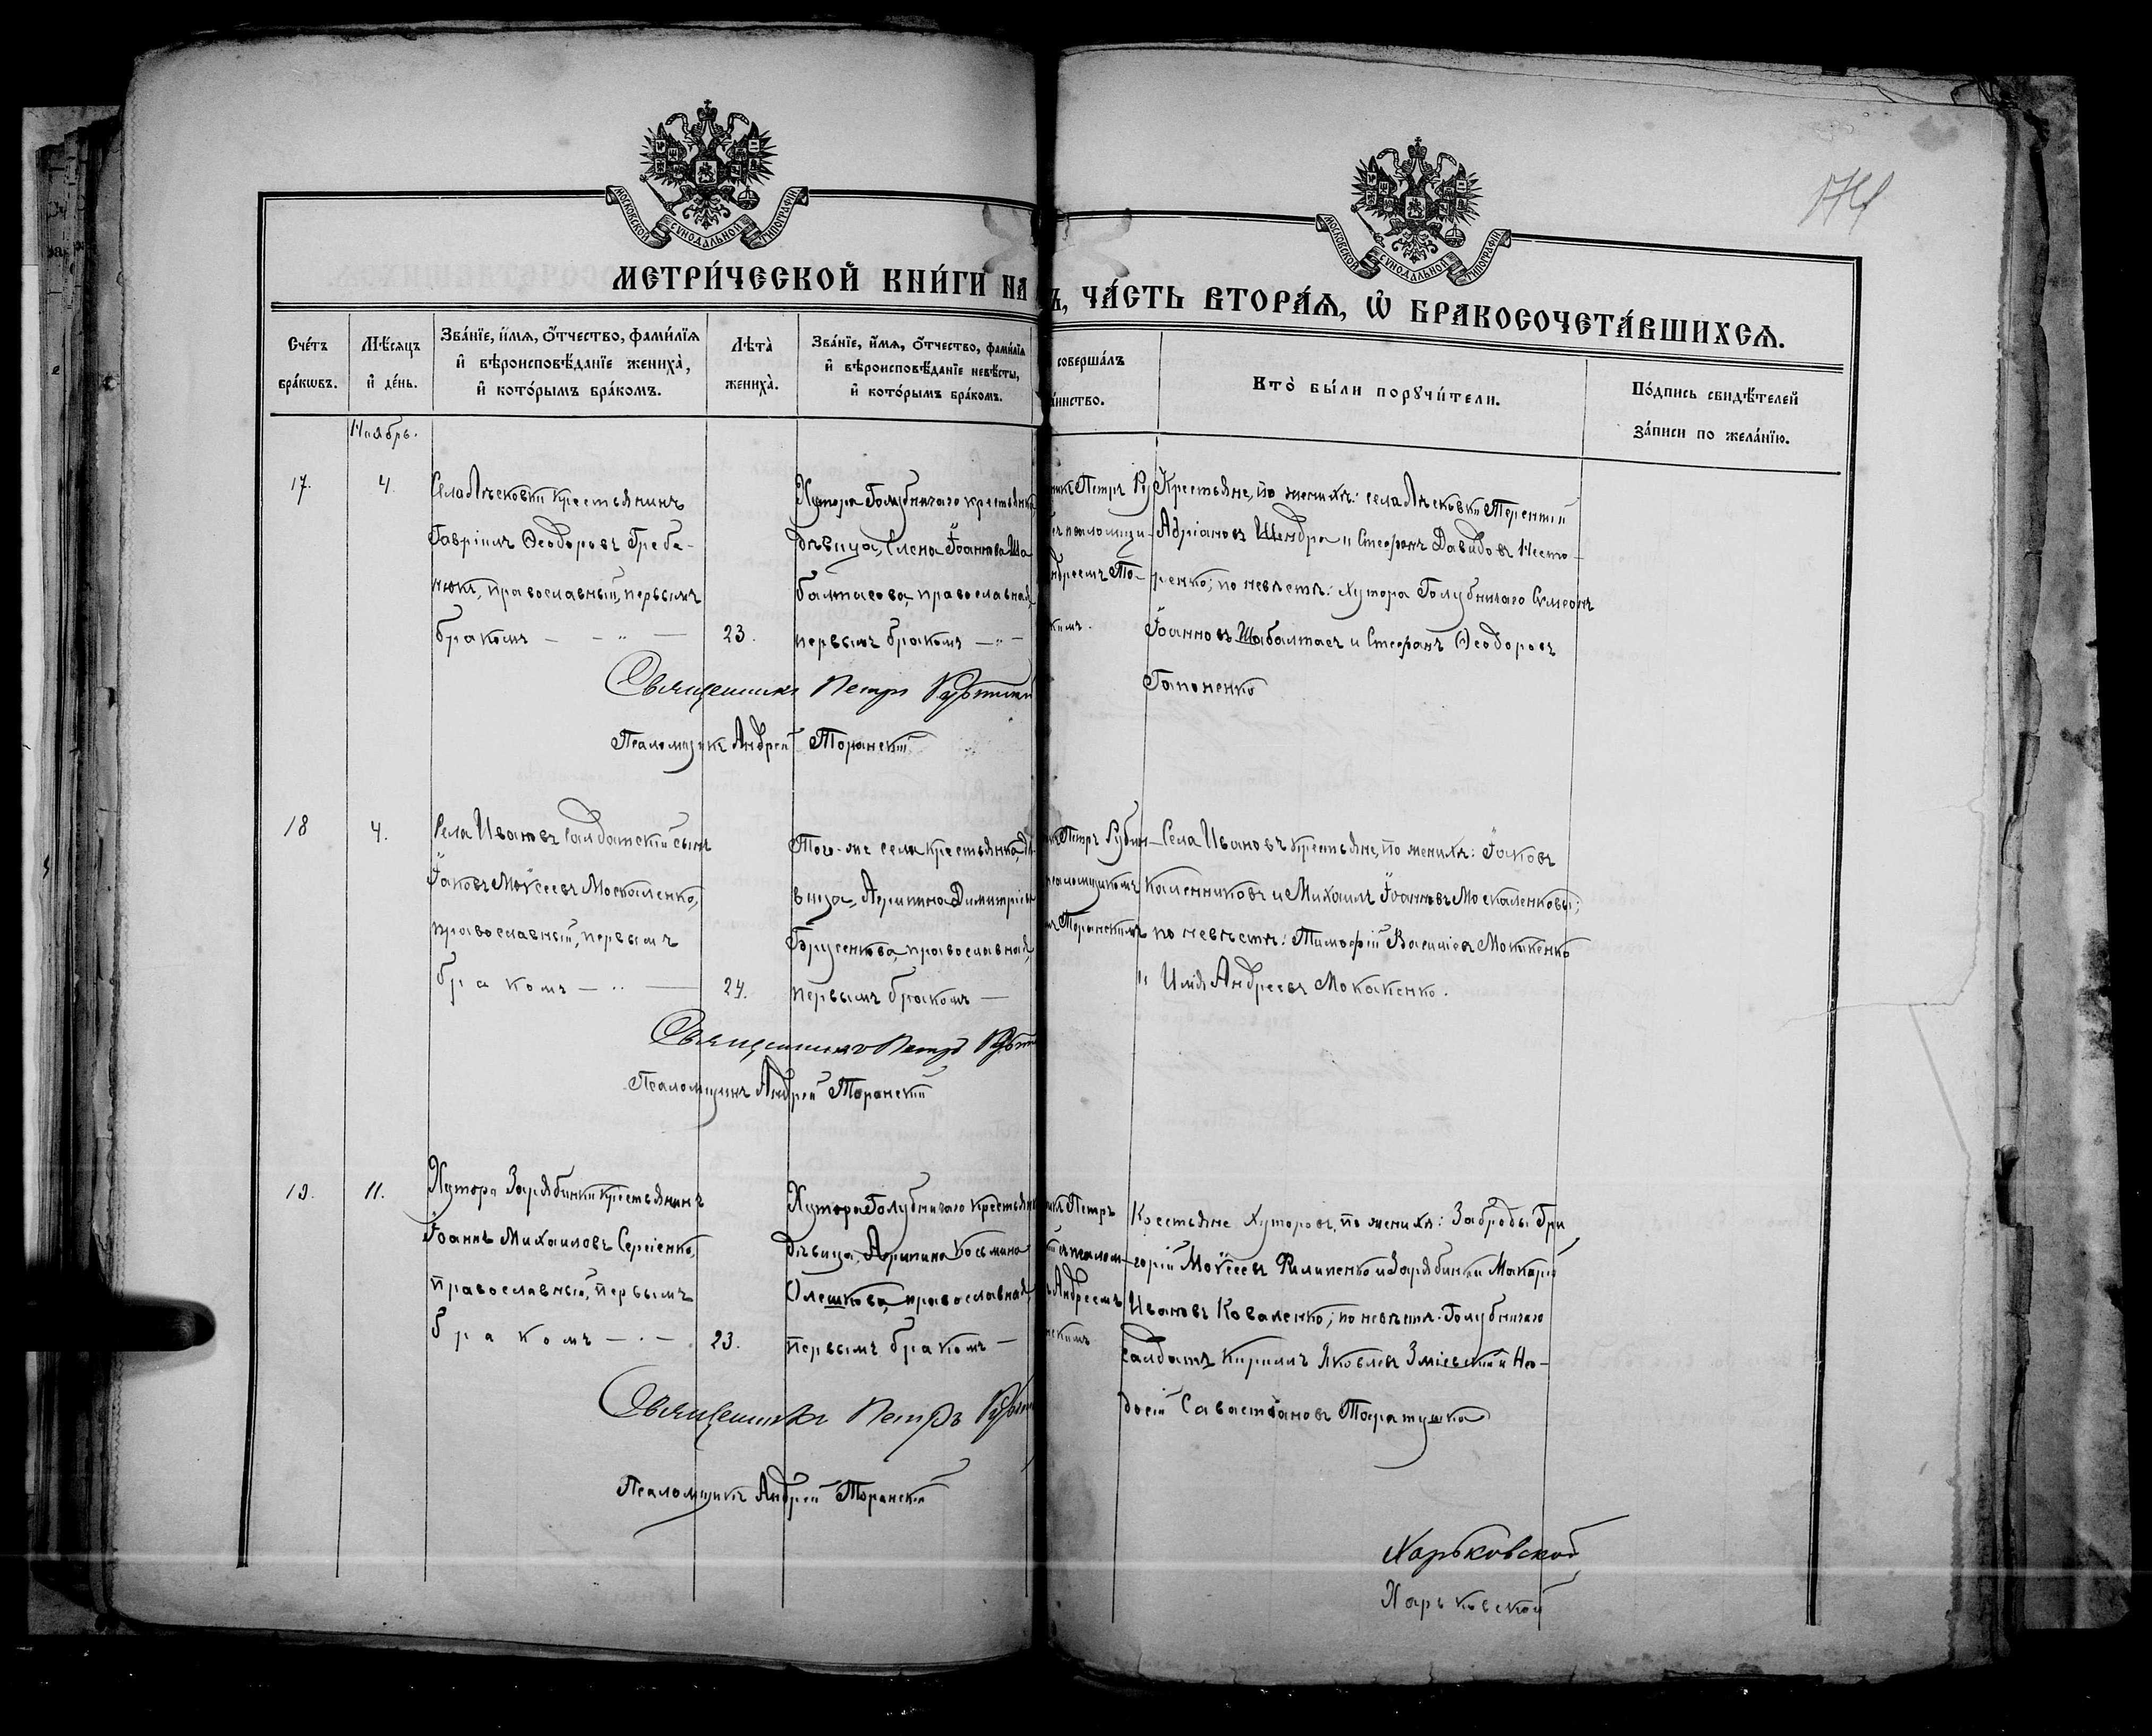 МОСКОВСКОЙ СѴНОДАЛЬНОЙ ТИПОГРАФІИ
МОСКОВСКОЙ СѴНОДАЛЬНОЙ ТИПОГРАФІИ
МЕТРИ́ЧЕСКОЙ КНИ́ГИ НА
Ъ, ЧА́СТЬ ВТОРА́Ѧ, Ѿ БРАКОСОЧЕТА́ВШИХСѦ.
Сче́тъ бра́кѡвъ.
Мѣ́сяцъ и҆ де́нь.
Зва́нїе, и҆́мѧ, ѻ҆́тчество, фами́лїѧ
и҆ вѣроисповѣ́данїе жениха̀,
и҆ кото́рымъ бра́комъ.
Лѣта̀ жениха̀.
Зва́нїе, и҆́мѧ, ѻ҆́тчество, фами́лїѧ
и҆ вѣроисповѣ́данїе невѣ́сты,
и҆ кото́рымъ бра́комъ.
соверша́лъ
а́инство.
Кто̀ бы́ли порꙋчи́тели.
По́дпись свидѣ́телей
за́писи по жела́нїю.
Ноябрь.
17.
4.
Села Лѣсковки крестьянинъ
Гавріилъ Ѳеодоровъ Греба-
нюкъ, православный, первымъ
бракомъ — - „ —
23.
Хутора Голубничаго крестьянка,
дѣвица, Елена Іоаннова Ша
балтасова, православная,
первымъ бракомъ — „ —
никъ Петръ Ру
ъ псаломщи-
ндреемъ То-
кимъ.
Крестьяне, по женихѣ: села Лѣсковки Терентій
Адріановъ Шендра и Стефанъ Давидовъ Несте-
ренко; по невѣстѣ: хутора Голубничаго Сѵмеонъ
Іоанновъ Шабалтасъ и Стефанъ Ѳеодоровъ
Гапоненко
Священникъ Петръ
Псаломщикъ Андрей Торанскій
18
4.
Села Ивановъ Солдатскій сынъ
Іаковъ Моѵсеевъ Москаленко,
православный, первымъ
бракомъ — „ —
24.
Того-же села крестьянка, дѣ
вица, Агрипина Димитріева
Брусенкова, православная,
первымъ бракомъ —
Петръ Рубин
саломщикомъ
Торанскимъ
Села Ивановъ крестьяне, по женихѣ: Іаковъ
Каленниковъ и Михаилъ Іоанновъ Москаленковы;
по невѣстѣ: Тимофій Василіевъ Мокиенко
и Илія Андреевъ Мокакенко.
Священникъ Петръ
Псаломщикъ Андрей Торанскій
19.
11.
Хутора Зарябинки крестьянинъ
Іоаннъ Михаиловъ Сергіенко,
православный, первымъ
бракомъ — . —
23.
Хутора Голубничаго крестьянка
дѣвица, Агрипина Косьмина
Олешкова, православная,
первымъ бракомъ —
Петръ
псалом-
Андреемъ
нскимъ
Крестьяне хуторовъ, по женихѣ: Заброды Гри
горій Моѵсеевъ Филипенко и Зарябинки Макарій
Ивановъ Коваленко; по невѣстѣ: Голубничаго
Солдатъ Кириллъ Яковлевъ Зміевскій и Ѳео-
досій Савастіановъ Таратушка
Священникъ Петръ
Псаломщикъ Андрей Торанскій
Харьковской
Харьковской